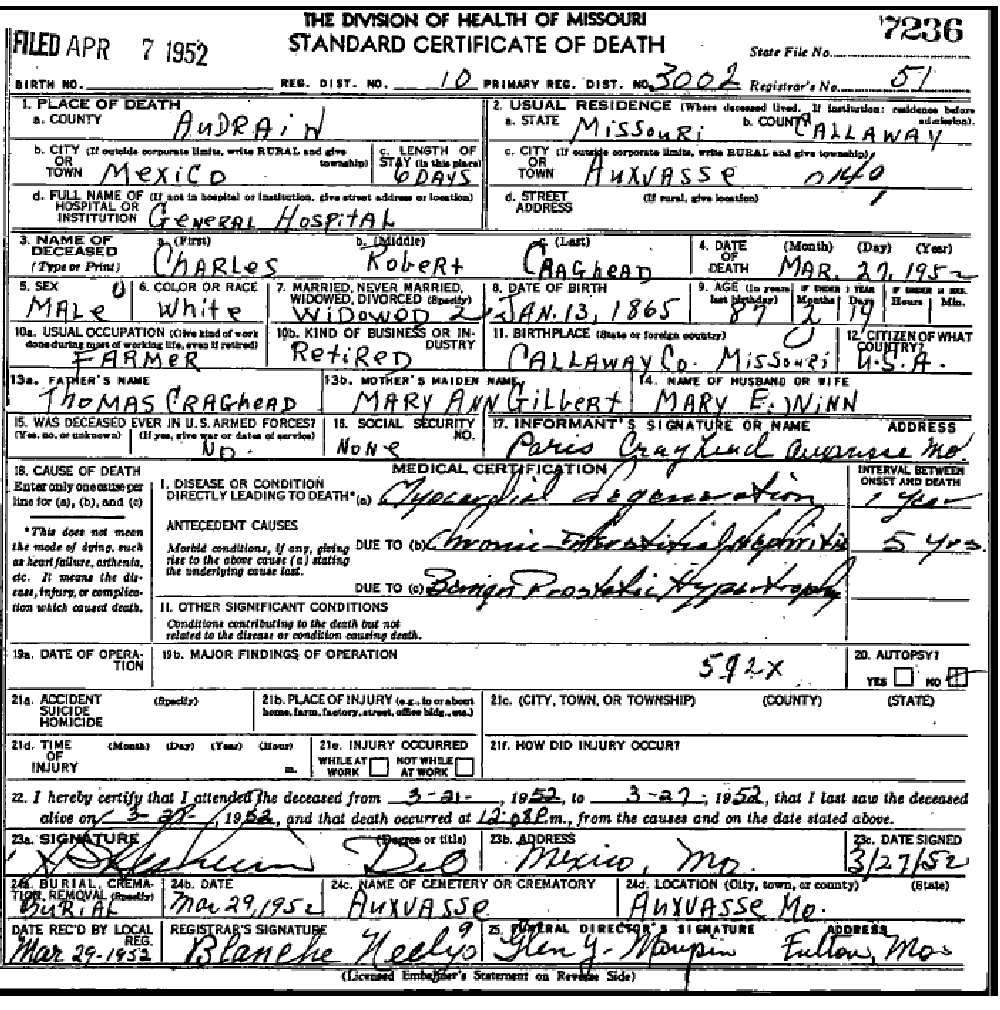 THE DIVISION OF HEALTH OF MISSOURI
7236
FILED APR 7 1952
STANDARD CERTIFICATE OF DEATH
State File No.
BIRTH NO. REG. DIST. NO. 10 PRIMARY REG. DIST. NO. 3002 Registrar's No. 51
1. PLACE OF DEATH
a. COUNTY AUDRAIN
2. USUAL RESIDENCE (Where deceased lived. If institution: residence before admission).
a. STATE MISSOURI b. COUNTY CALLAWAY
b. CITY (If outside corporate limits, write RURAL and give township) OR TOWN MEXICO
c. LENGTH OF STAY (in this place) 6 DAYS
c. CITY (If outside corporate limits, write RURAL and give township) OR TOWN AUXVASSE 0140
d. FULL NAME OF (If not in hospital or institution, give street address or location) HOSPITAL OR INSTITUTION GENERAL HOSPITAL
d. STREET ADDRESS (If rural, give location)
3. NAME OF DECEASED (Type or Print) a. (First) CHARLES b. (Middle) ROBERT c. (Last) CRAGHEAD
4. DATE OF DEATH (Month) (Day) (Year) MAR. 27, 1952
5. SEX MALE
6. COLOR OR RACE White
7. MARRIED, NEVER MARRIED, WIDOWED, DIVORCED (Specify) WIDOWED 2
8. DATE OF BIRTH JAN. 13, 1865
9. AGE (In years last birthday) 87 IF UNDER 1 YEAR Months 2 Days 19 IF UNDER 24 HRS. Hours Min.
10a. USUAL OCCUPATION (Give kind of work done during most of working life, even if retired) FARMER
10b. KIND OF BUSINESS OR INDUSTRY Retired
11. BIRTHPLACE (State or foreign country) CALLAWAY CO. MISSOURI
12. CITIZEN OF WHAT COUNTRY? U.S.A.
13a. FATHER'S NAME THOMAS CRAGHEAD
13b. MOTHER'S MAIDEN NAME MARY ANN GILBERT
14. NAME OF HUSBAND OR WIFE MARY E. NINN
15. WAS DECEASED EVER IN U.S. ARMED FORCES? (Yes, no, or unknown) (If yes, give war or dates of service) NO.
16. SOCIAL SECURITY NO. NONE
17. INFORMANT'S SIGNATURE OR NAME ADDRESS Paris Craghead Auxvasse Mo.
18. CAUSE OF DEATH
Enter only one cause per line for (a), (b), and (c)
*This does not mean the mode of dying, such as heart failure, asthenia, etc. It means the disease, injury, or complication which caused death.
MEDICAL CERTIFICATION
INTERVAL BETWEEN ONSET AND DEATH
I. DISEASE OR CONDITION DIRECTLY LEADING TO DEATH* (a) Myocardial degeneration 1 year
ANTECEDENT CAUSES
Morbid conditions, if any, giving rise to the above cause (a) stating the underlying cause last.
DUE TO (b) Chronic Interstitial Nephritis 5 yrs.
DUE TO (c) Benign Prostatic Hypertrophy
II. OTHER SIGNIFICANT CONDITIONS
Conditions contributing to the death but not related to the disease or condition causing death.
19a. DATE OF OPERATION
19b. MAJOR FINDINGS OF OPERATION 592X
20. AUTOPSY? YES NO
21a. ACCIDENT SUICIDE HOMICIDE (Specify)
21b. PLACE OF INJURY (e.g., in or about home, farm, factory, street, office bldg., etc.)
21c. (CITY, TOWN, OR TOWNSHIP) (COUNTY) (STATE)
21d. TIME OF INJURY (Month) (Day) (Year) (Hour) m.
21e. INJURY OCCURRED WHILE AT WORK NOT WHILE AT WORK
21f. HOW DID INJURY OCCUR?
22. I hereby certify that I attended the deceased from 3-21-, 1952, to 3-27-, 1952, that I last saw the deceased
alive on 3-27-, 1952, and that death occurred at 12:08P.m., from the causes and on the date stated above.
23a. SIGNATURE (Degree or title) D.O
23b. ADDRESS Mexico, Mo.
23c. DATE SIGNED 3/27/52
24a. BURIAL, CREMATION, REMOVAL (Specify) BURIAL
24b. DATE Mar 29, 1952
24c. NAME OF CEMETERY OR CREMATORY AUXVASSE
24d. LOCATION (City, town, or county) (State) AUXVASSE MO.
DATE REC'D BY LOCAL REG. Mar 29-1952
REGISTRAR'S SIGNATURE Blanche Neely
25. FUNERAL DIRECTOR'S SIGNATURE ADDRESS Glen Y. Maupin Fulton, Mo
(Licensed Embalmer's Statement on Reverse Side)